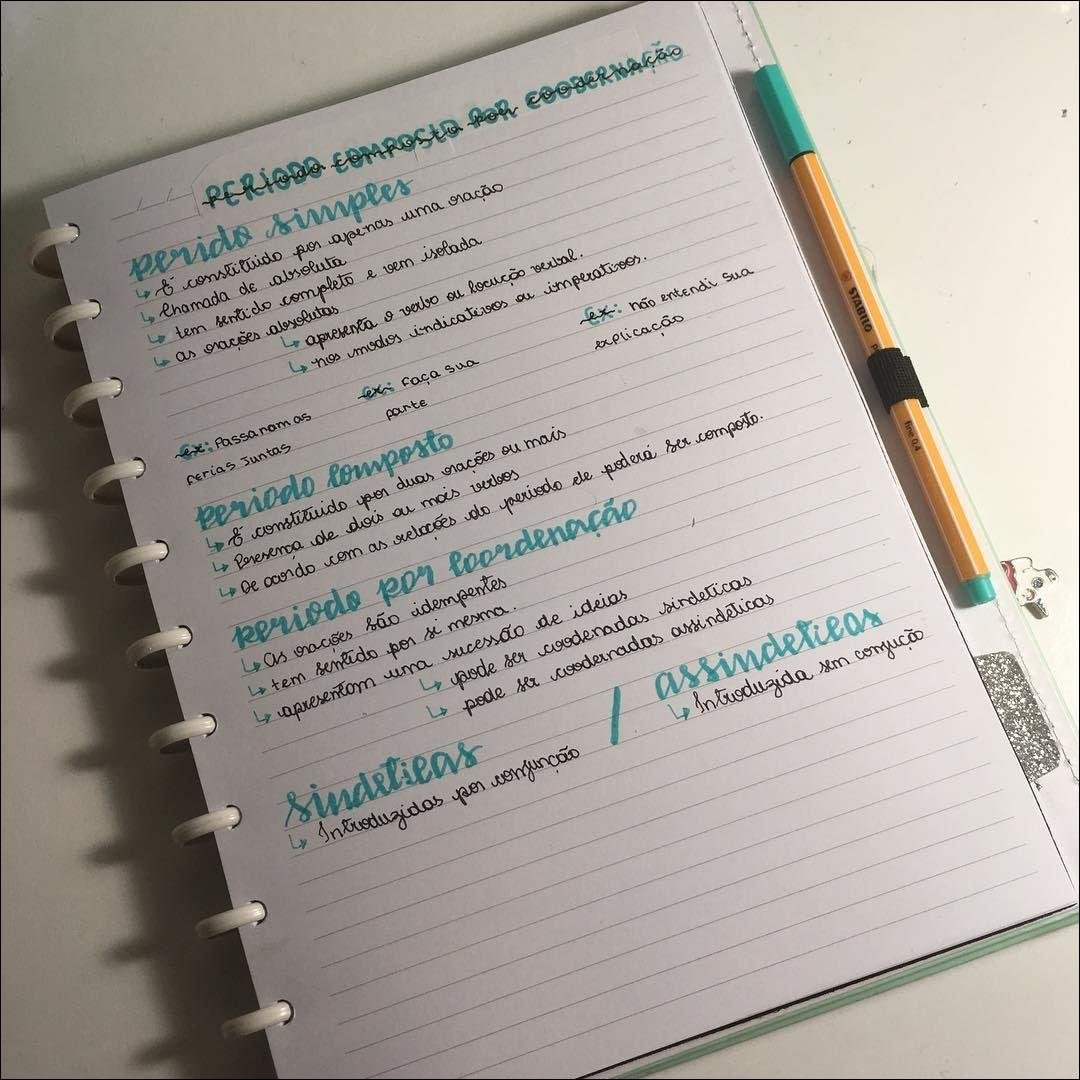 PERIODO COMPOSTO POR COODERNAÇÃO
periodo composto por coodernação
perido simples
↳ É constituido por apenas uma oração
↳ Chamada de absoluta
↳ tem sentido completo e vem isolada
↳ as orações absolutas
↳ apresenta o verbo ou locução verbal.
↳ nos modos indicativos ou imperativos.
ex: Passaram as
ferias Juntas
ex: Faça sua
parte
ex: não entendi sua
explicação
periodo composto
↳ É constituido por duas orações ou mais
↳ Presença de dois ou mais verbos
↳ De acordo com as relações do periodo ele poderá ser composto.
periodo por coordenação
↳ As orações são idempentes
↳ tem sentido por si mesma.
↳ apresentam uma sucessão de ideias
↳ pode ser coodenadas sindeticas
↳ pode ser coodernadas assindéticas
sindeticas / assindeticas
↳ Introduzidas por conjunção
↳ Introduzida sem conjução
STABILO
fine 0,4